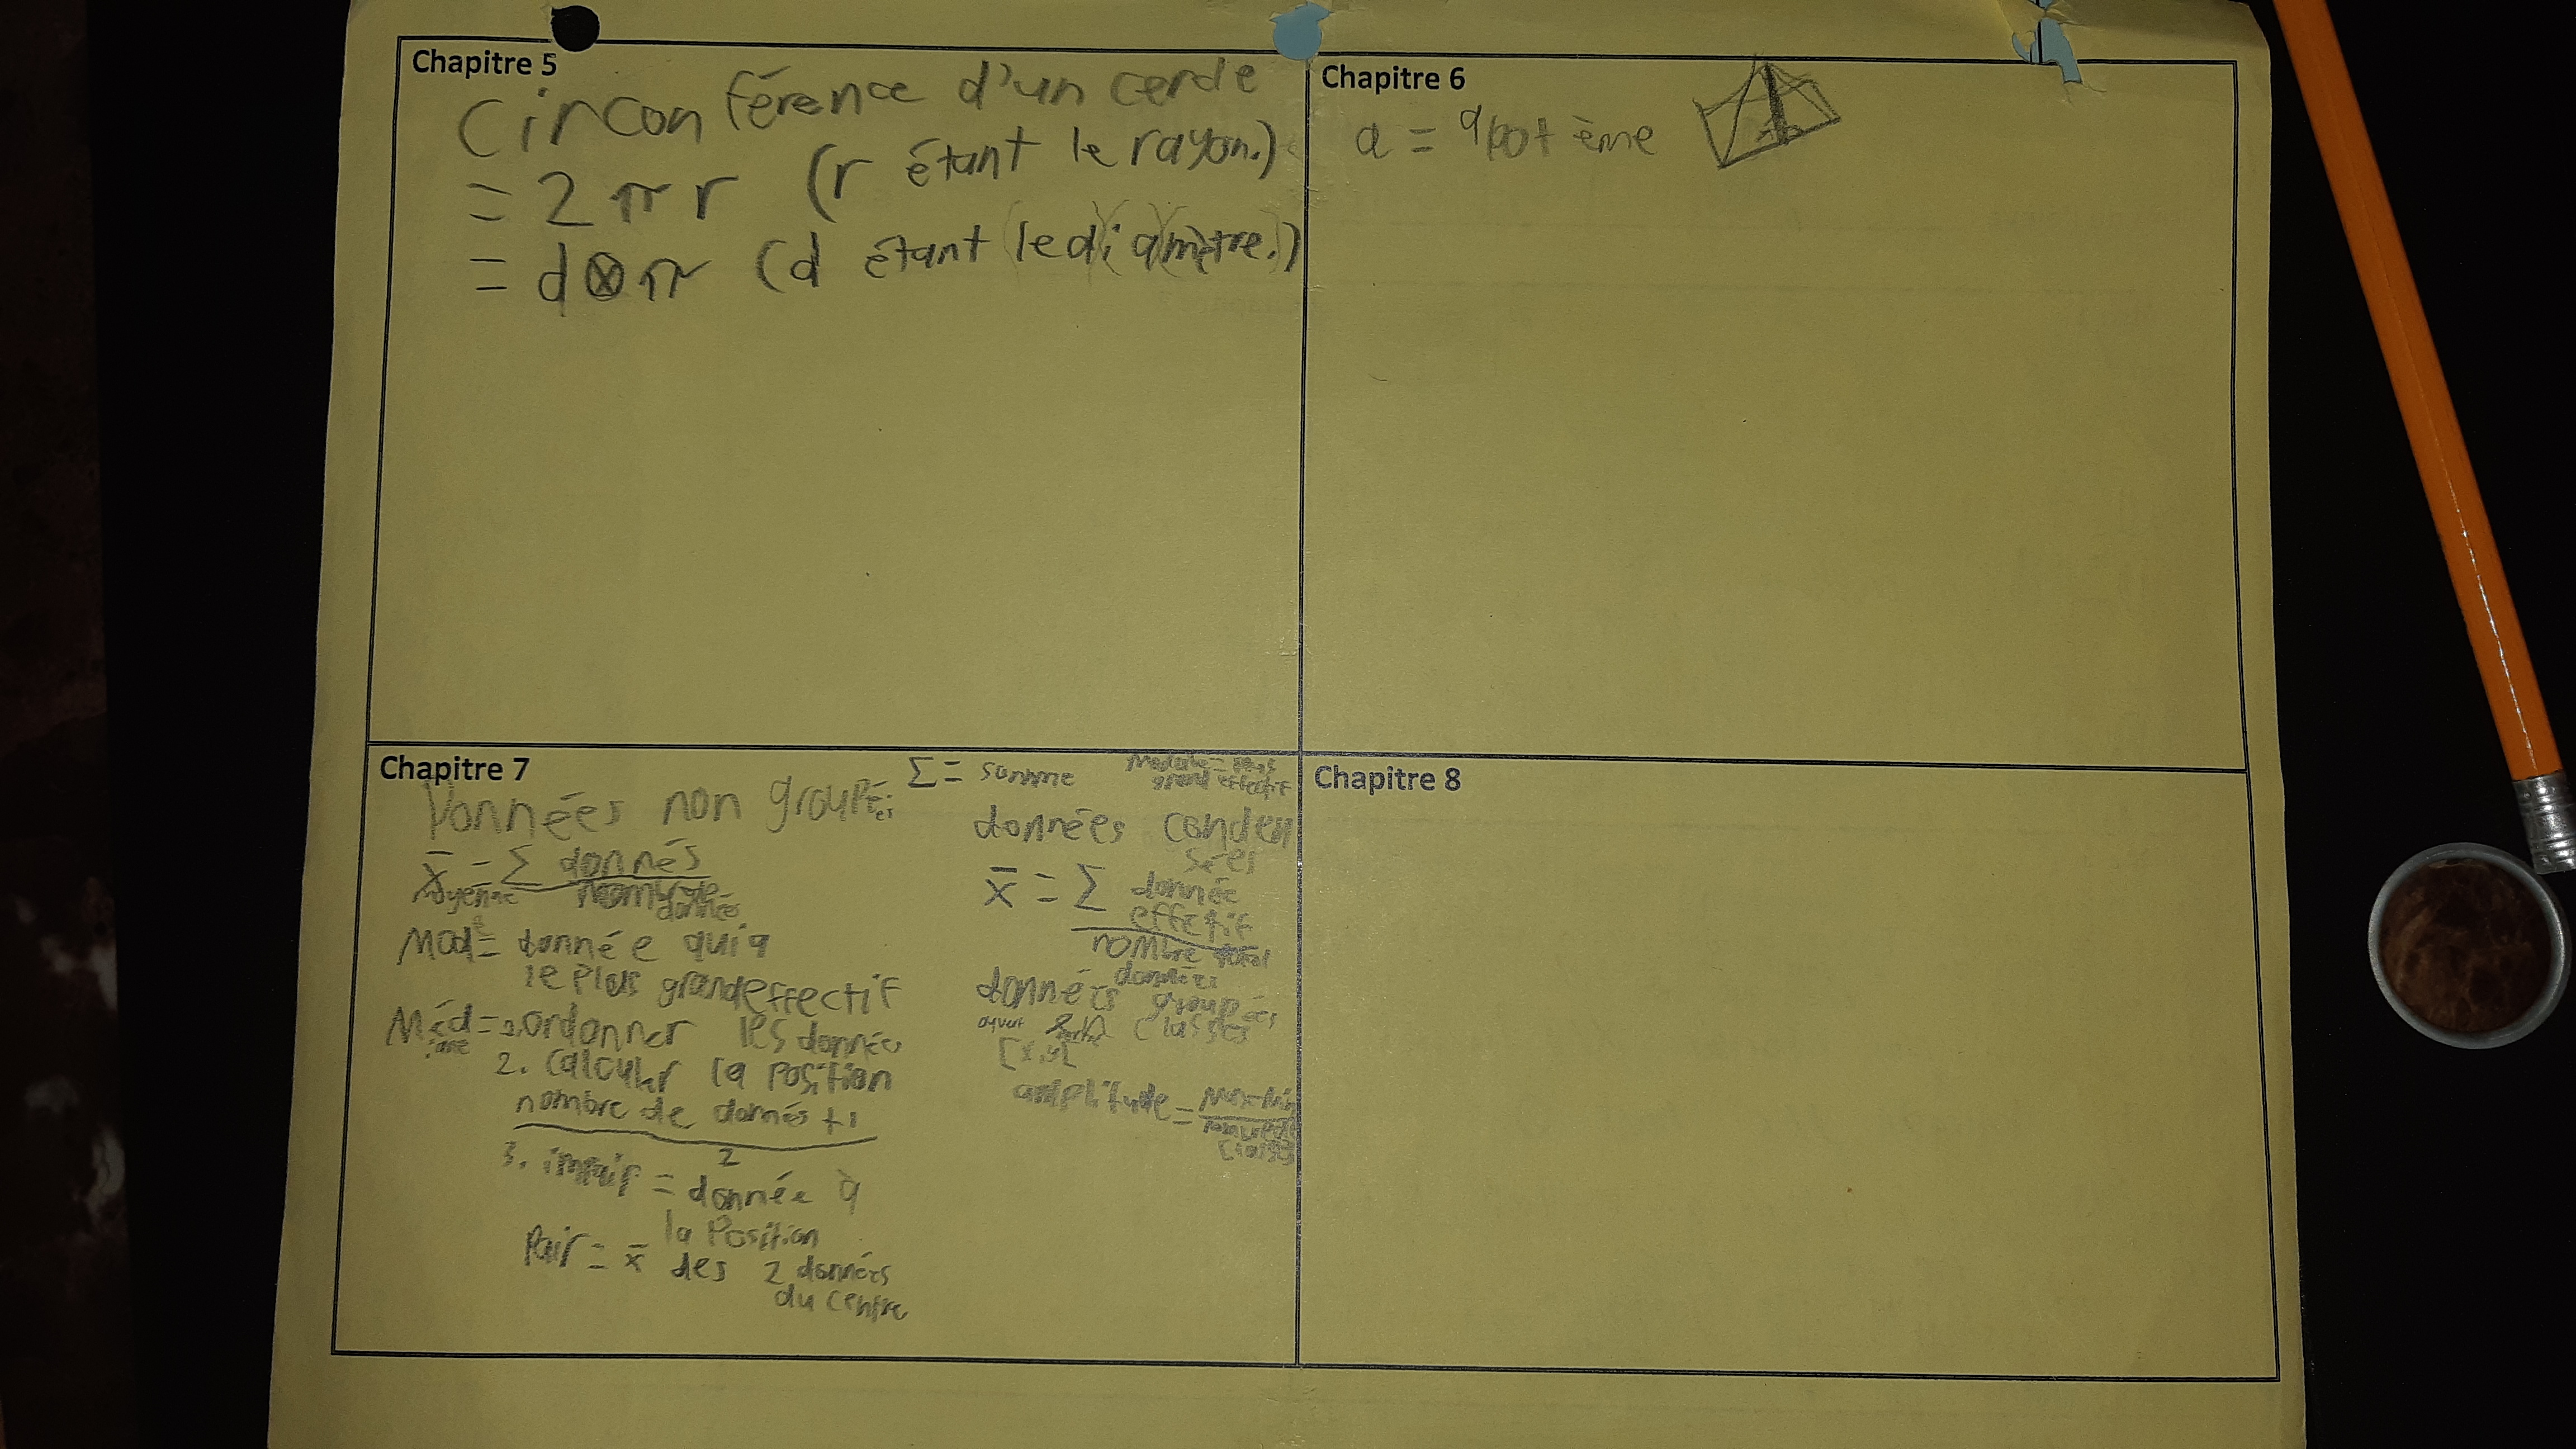 Chapitre 5
Circonférence d'un cercle
= 2πr (r étant le rayon.)
= d⊗π (d étant le diamètre.)
Chapitre 6
a = apotème
Chapitre 7
Données non groupées
x̄ = Σ donnés
moyenne nombre de données
Mode = donnée qui a
le plus grand effectif
Médiane = 1. ordonner les données
2. Calculer la position
nombre de donnés +1
2
3. impair = donnée à
la Position
Pair = x̄ des 2 données
du centre
Σ = somme
Modale = plus
grand effectif
données conden
sées
x̄ = Σ donnée
effectif
nombre total
données
données groupées
ouvert classes
[x,y[
amplitude = Max-Min
nombre de
classes
Chapitre 8